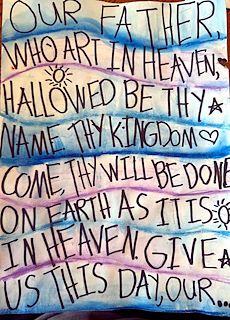 OUR FATHER,
WHO ART IN HEAVEN,
HALLOWED BE THY
NAME. THY KINGDOM
COME, THY WILL BE DONE
ON EARTH AS IT IS
IN HEAVEN. GIVE
US THIS DAY, OUR...